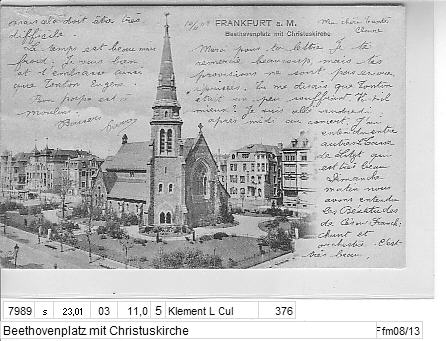 mais cela doit être très
difficile.
Le temps est beau mais
froid. Je vous
et t'embrasse ainsi
que Tonton Eugène.
Bon
Baisers
10/ 02
FRANKFURT a. M.
Beethovenplatz mit Christuskirche
Ma chère tante
Merci pour ta lettre. Je te
remercie beaucoup, mais tes
provisions ne sont pas encore
épuisées. Tu me disais que Tonton
était un peu souffrant. Va-t-il
mieux? Je suis allé vendredi
après midi au concert. J'ai
entendu entre
autres
de Liszt qui
est très beau.
Dimanche
matin nous
avons entendu
les Béatitudes
de César Franck,
chant et
orchestre. C'est
très beau.
7989 s 23,01 03 11,0 5 Klement L Cul 376
Beethovenplatz mit Christuskirche
Ffm08/13